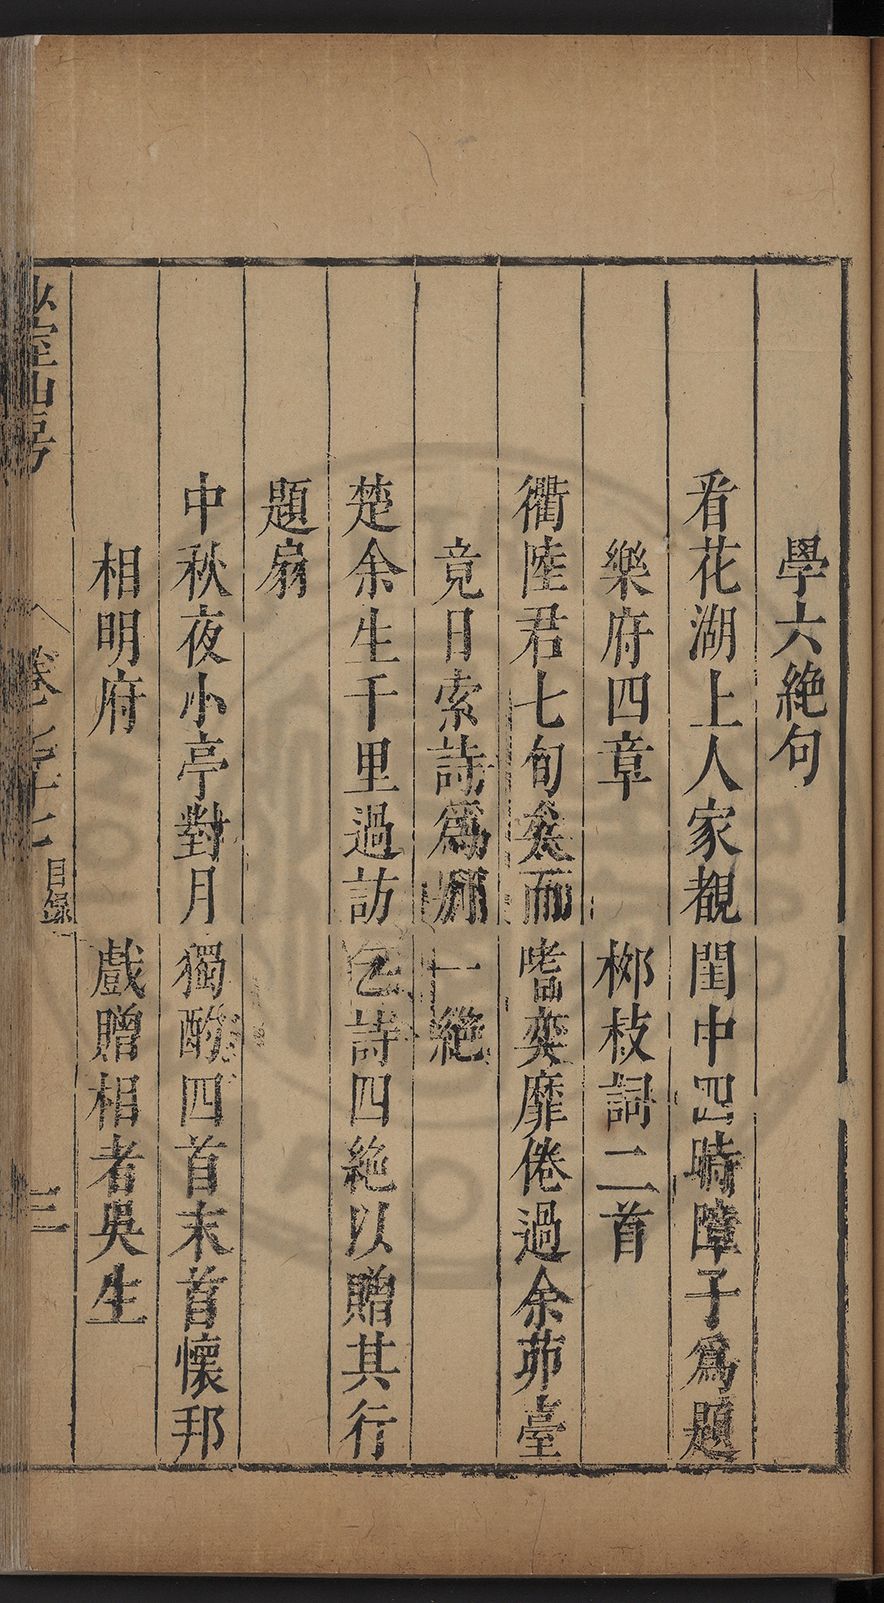 學六絶句
看花湖上人家覩閨中四時障子爲題
樂府四章　柳枝詞二首
衢陸君七旬矣而嗜奕靡倦過余茆臺
竟日索詩爲賦一絶
楚余生千里過訪乞詩四絶以贈其行
題扇
中秋夜小亭對月獨酌四首末首懷邦
相明府　戲贈相者吳生
室山房
卷七十七
目錄
三